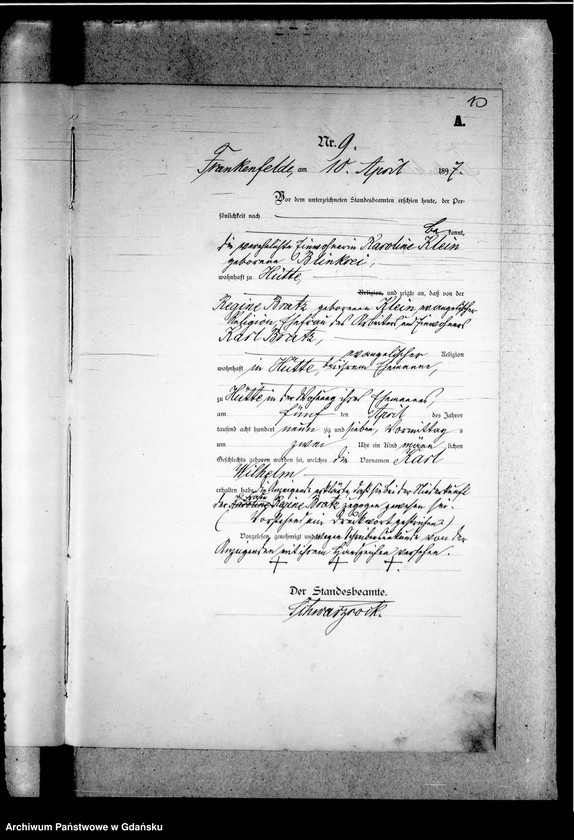 10
A.
Nr. 9.
Frankenfelde, am 10. April 1897.
Vor dem unterzeichneten Standesbeamten erschien heute, der Per-
sönlichkeit nach
bekannt,
die verehelichte Einwohnerin Karoline Klein
geborene Blinkrei,
wohnhaft zu Hütte,
Religion, und zeigte an, daß von der
Regine Bratz geborenen Klein, evangelischer
Religion, Ehefrau des Arbeiters und Einwohners
Karl Bratz,
evangelischer Religion
wohnhaft in Hütte, bei ihrem Ehemanne,
zu Hütte, in der Wohnung ihres Ehemannes,
am fünf ten April des Jahres
tausend acht hundert neun zig und sieben, Vormittags
um zwei Uhr ein Kind männlichen
Geschlechts geboren worden sei, welches die Vornamen Karl
Wilhelm
erhalten habe. Die Anzeigende erklärte, daß sie bei der Niederkunft
der Karoline Regine Bratz zugegen gewesen sei.
(Vorstehend ein Druckwort gestrichen)
Vorgelesen, genehmigt und wegen Schreibensunkunde von der
Anzeigenden mit ihrem Handzeichen versehen.
+ + +
Der Standesbeamte.
Schwarzrock.
Archiwum Państwowe w Gdańsku